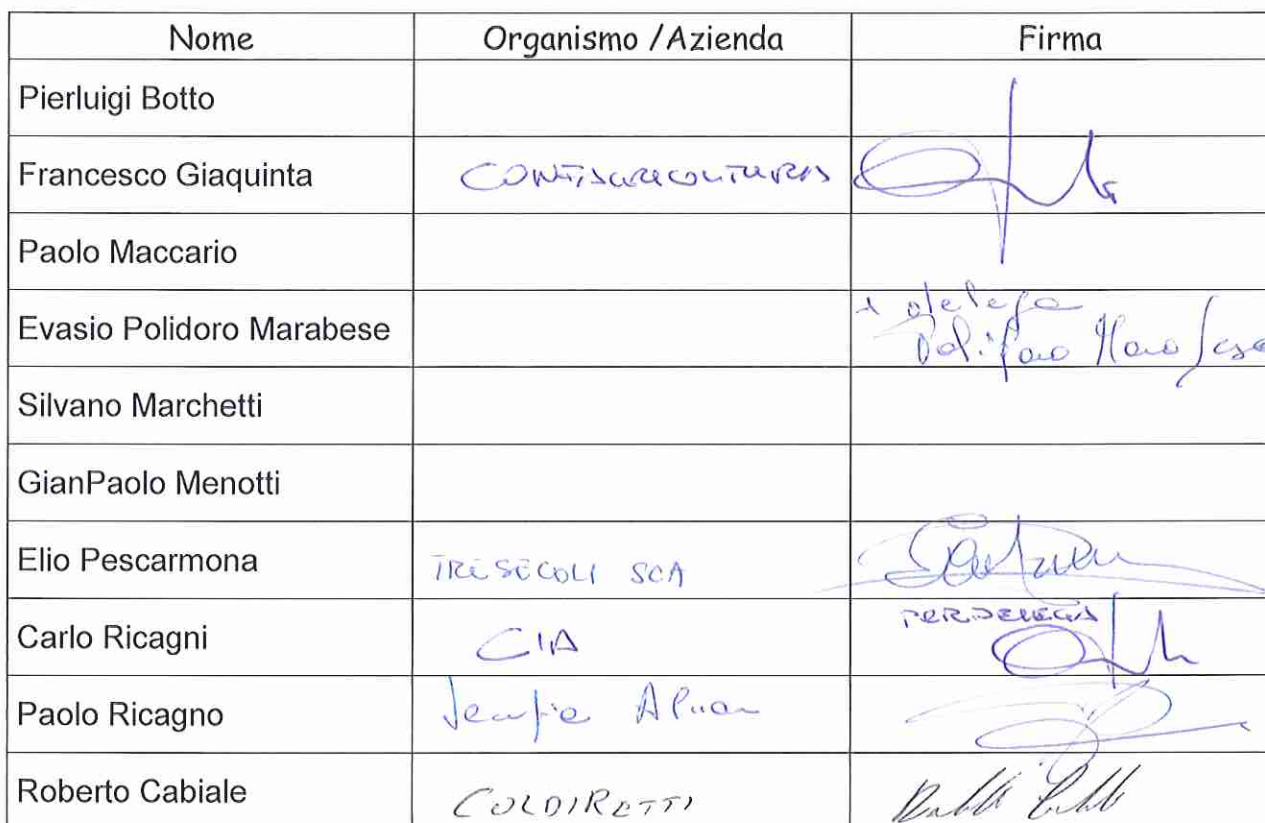 Nome Organismo /Azienda Firma
Pierluigi Botto
Francesco Giaquinta CONFAGRICOLTURA
Paolo Maccario
Evasio Polidoro Marabese + delega
Silvano Marchetti
GianPaolo Menotti
Elio Pescarmona TRE SECOLI SCA
Carlo Ricagni CIA PER DELEGA
Paolo Ricagno
Roberto Cabiale COLDIRETTI